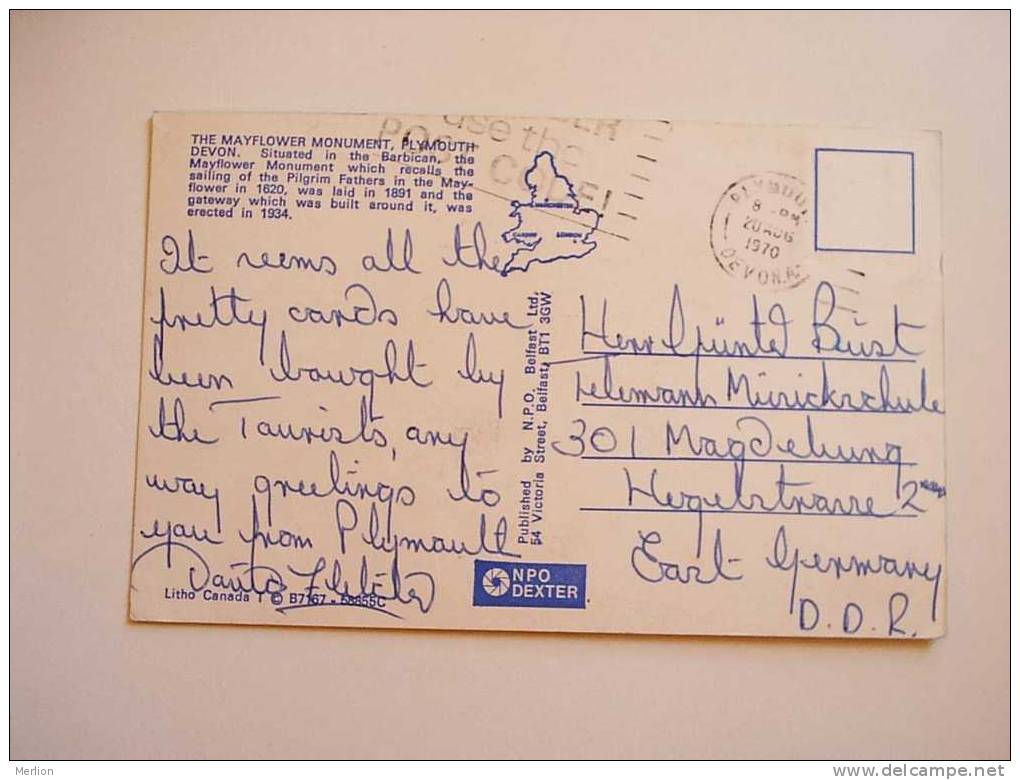 THE MAYFLOWER MONUMENT, PLYMOUTH
DEVON. Situated in the Barbican, the
Mayflower Monument which recalls the
sailing of the Pilgrim Fathers in the May-
flower in 1620, was laid in 1891 and the
gateway which was built around it, was
erected in 1934.
use the
POST CODE!
MANCHESTER
CARDIFF LONDON
PLYMOUTH
8 PM
20 AUG
1970
DEVON
It seems all the
pretty cards have
been bought by
the Tourists, any
way greetings to
you from Plymouth
Litho Canada © B7167 - 58655C
Published by N.P.O. Belfast Ltd.,
54 Victoria Street, Belfast, BT1 3GW
NPO
DEXTER
Herr Günter Büst
Telemann Musickschule
301 Magdeburg
Hegelstrasse 2
East Germany
D.D.R.
Merlion
delcampe.net